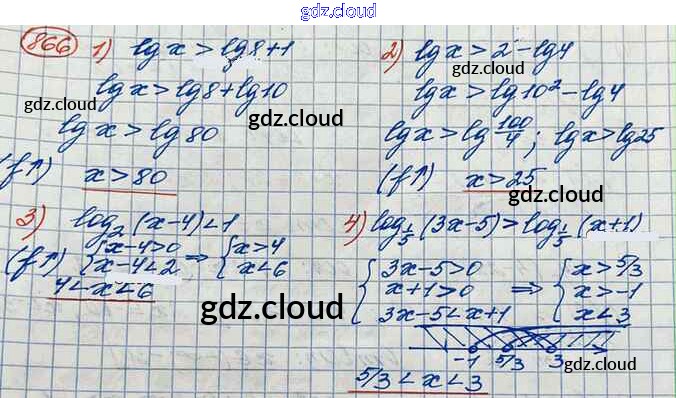 gdz.cloud
866
1) lg x > lg 8 + 1
lg x > lg 8 + lg 10
lg x > lg 80
(f↑) x > 80
2) lg x > 2 - lg 4
lg x > lg 10² - lg 4
lg x > lg 100/4 ; lg x > lg 25
(f↑) x > 25
3) log₂ (x-4) < 1
(f↑) { x-4>0 ⇒ { x>4
x-4<2 x<6
4 < x < 6
4) log 1/5 (3x-5) > log 1/5 (x+1)
{ 3x-5>0 { x > 5/3
x+1>0 ⇒ x > -1
3x-5 < x+1 x < 3
-1 5/3 3
5/3 < x < 3
gdz.cloud
gdz.cloud
gdz.cloud
gdz.cloud
gdz.cloud
gdz.cloud
gdz.cloud
gdz.cloud